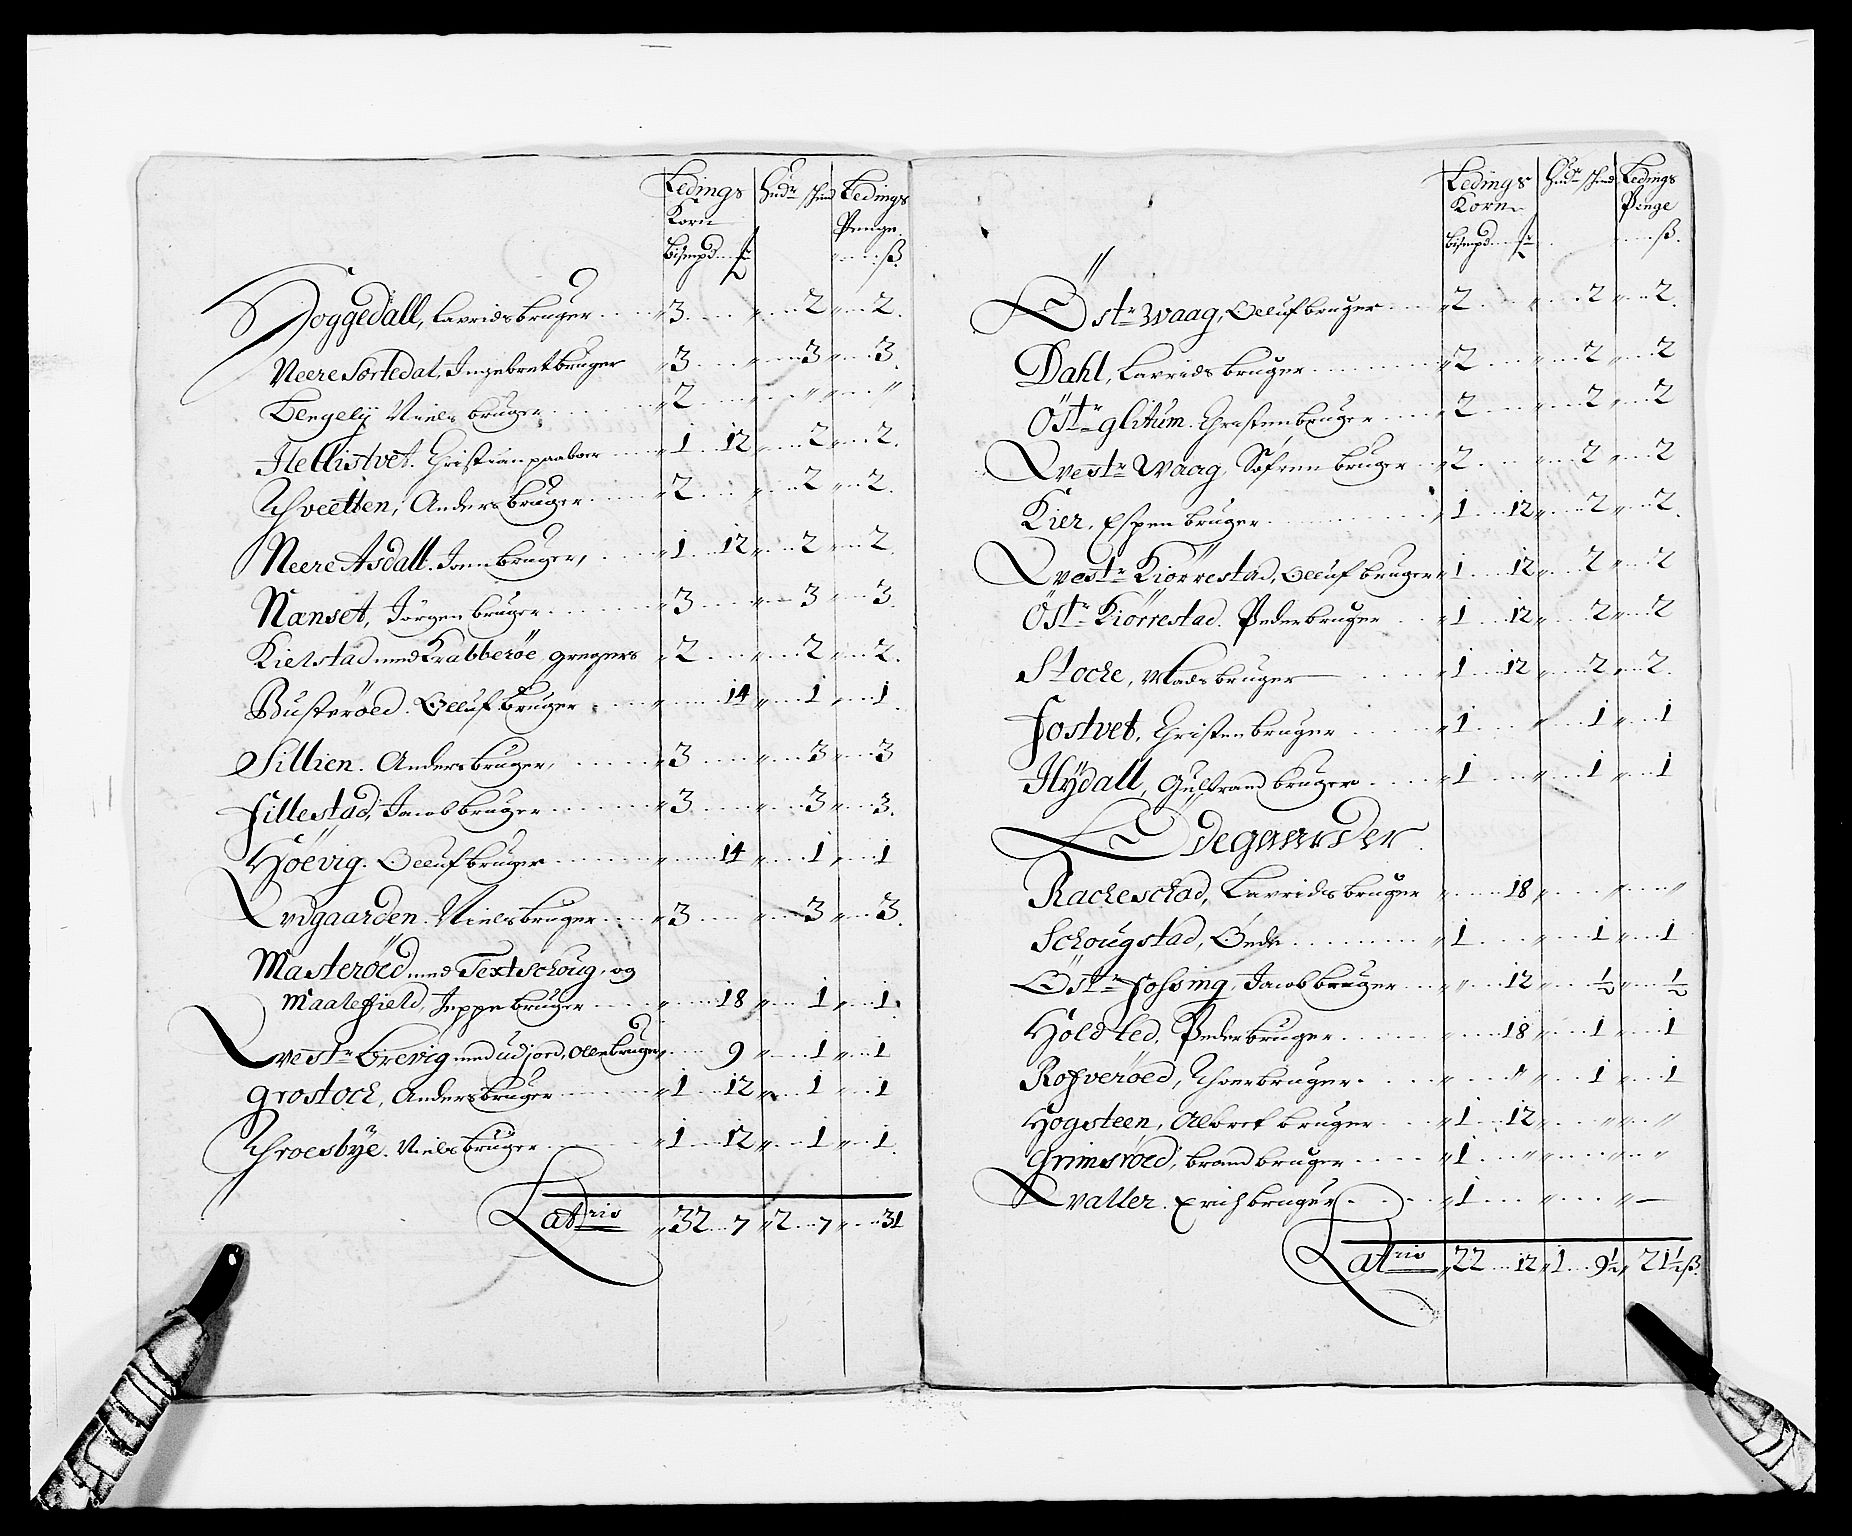 Ledings Korn Hudr skind Ledings Penge
Bismpd ß
Hoggedall, Lavrids bruger 3 2 2
Neere Sortedal, Ingebret bruger 3 3 3
Niels bruger 2 " "
Hellistvet. Christian paaboer 1 12 2 2
Schveetten, Anders bruger 2 2 2
Neere Asdall. Joen bruger, 1 12 2 2
Nanset, Jörgen bruger 3 3 3
Kielstad med Krabberöe gregers 2 2 2
Busteröed. Olluf bruger 14 1 1
Sillien. Anders bruger, 3 3 3
Fillestad, Jacob bruger 3 3 3
Höevig. Olluf bruger 14 1 1
Niels bruger 3 3 3
Masteröed med Textschoug, og
Maalefield, Jeppe bruger 18 1 1
vestr Brevig med udjord, Olle bruger 9 1 1
grostoch, Anders bruger 1 12 1 1
Throesbÿe. Niels brüger 1 12 1 1
Latris 32 7 2 7 31
Ledings Korn Hudr skind Ledings Penge
Bismpd ß
Östr Waag, Olluf bruger 2 2 2
Dahl, Lavrids bruger 2 2 2
Östr glitum. Christen bruger 2 2 2
vestr Waag, Söfren bruger 2 2 2
Kier, Espen bruger 1 12 2 2
vestr Kiörrestad, Olluf bruger 1 12 2 2
Östr Kiörrestad. Peder bruger 1 12 2 2
Stocke, Mads bruger 1 12 2 2
Fostvet, Christen bruger 1 1 1
Hÿdall, Gulbrand bruger 1 1 1
Ödegaarder
Rackeschad, Lavrids bruger 18 " "
Schougstad, Öede 1 1 1
Östr Fossing, Jacob bruger 12 ½ ½
Holdted, Peder bruger 18 1 1
Rofveröed, bruger 1 1
Hogsteen, Albret bruger 1 12 " "
Grimsröed, brand bruger 1 " " "
valler. Erich bruger 1
Latris 22 12 1 9½ 21½ ß